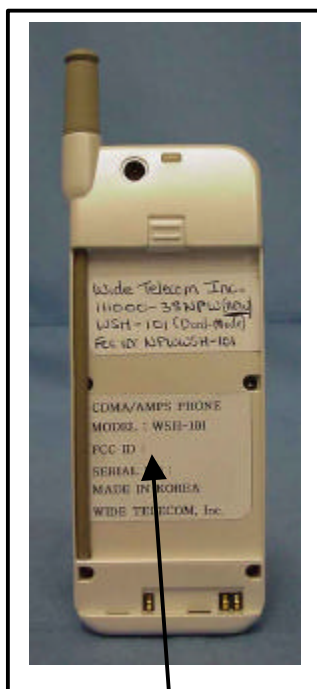 Wide Telecom Inc.
WSH-101 (Dual-Mode)
FCC ID: NPWWSH-101
CDMA/AMPS PHONE
MODEL : WSH-101
FCC ID :
SERIAL :
MADE IN KOREA
WIDE TELECOM, Inc.